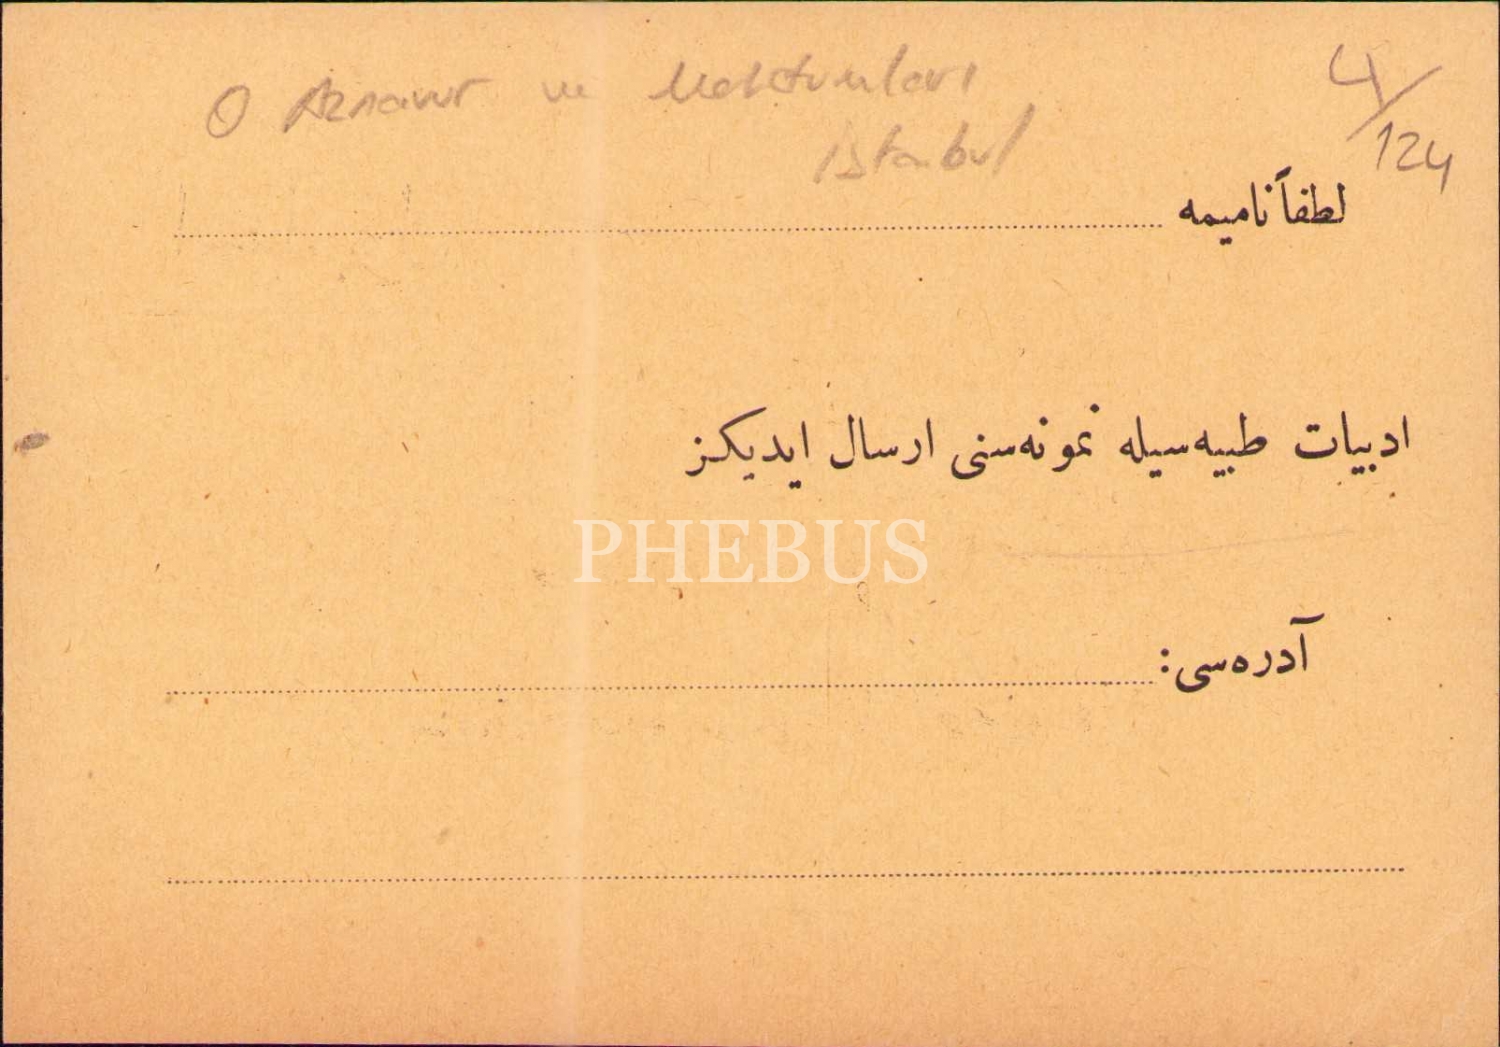 O Aznavur ve Mahdumları
4/124
İstanbul
لطفاً نامیمه
ادبیات طبیه‌سیله نمونه‌سنی ارسال ایدیکز
PHEBUS
آدره‌سی: